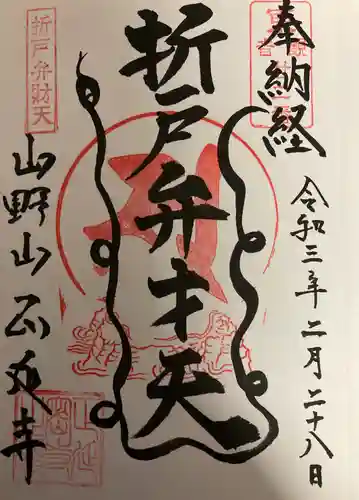 奉納経
令和三年二月二十八日
折戸弁才天
折戸弁財天
山野山正延寺